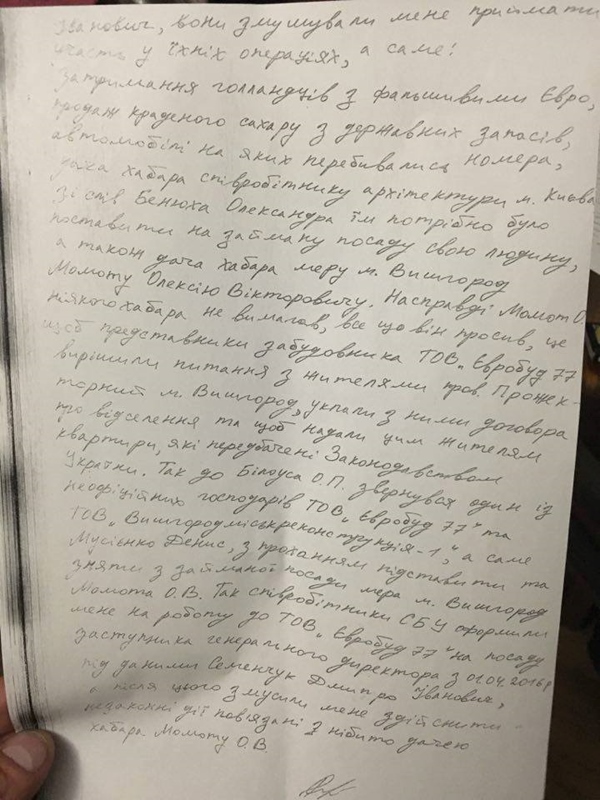 Іванович, вони змушували мене приймати
участь у їхніх операціях, а саме:
затримання голландців з фальшивими Євро,
продаж краденого сахару з державних запасів,
автомобілі на яких перебивались номера,
дача хабара співробітнику архітектури м. Києва
зі слів Бенюха Олександра їм потрібно було
поставити на займану посаду свою людину,
а також дача хабара меру м. Вишгород
Момоту Олексію Вікторовичу. Насправді Момот О.
ніякого хабара не вимагав, все що він просив, це
щоб представники забудовника ТОВ "Євробуд 77
вирішили питання з жителями пров. Прожек-
торний м. Вишгород, уклали з ними договора
про відселення та щоб надали цим жителям
квартири, які передбачені Законодавством
України. Так до Білоуса О.П. звернувся один із
неофіційних господарів ТОВ "Євробуд 77" та
ТОВ "Вишгородміськреконструкція-1", а саме
Мусієнко Денис, з проханням підставити та
зняти з займаної посади мера м. Вишгород
Момота О.В. Так співробітники СБУ оформили
мене на роботу до ТОВ "Євробуд 77" на посаду
заступника генерального директора з 01.04.2016р
під даними Семенчук Дмитро Іванович,
а після цього змусили мене здійснити
незаконні дії пов'язані з нібито дачею
хабара Момоту О.В.